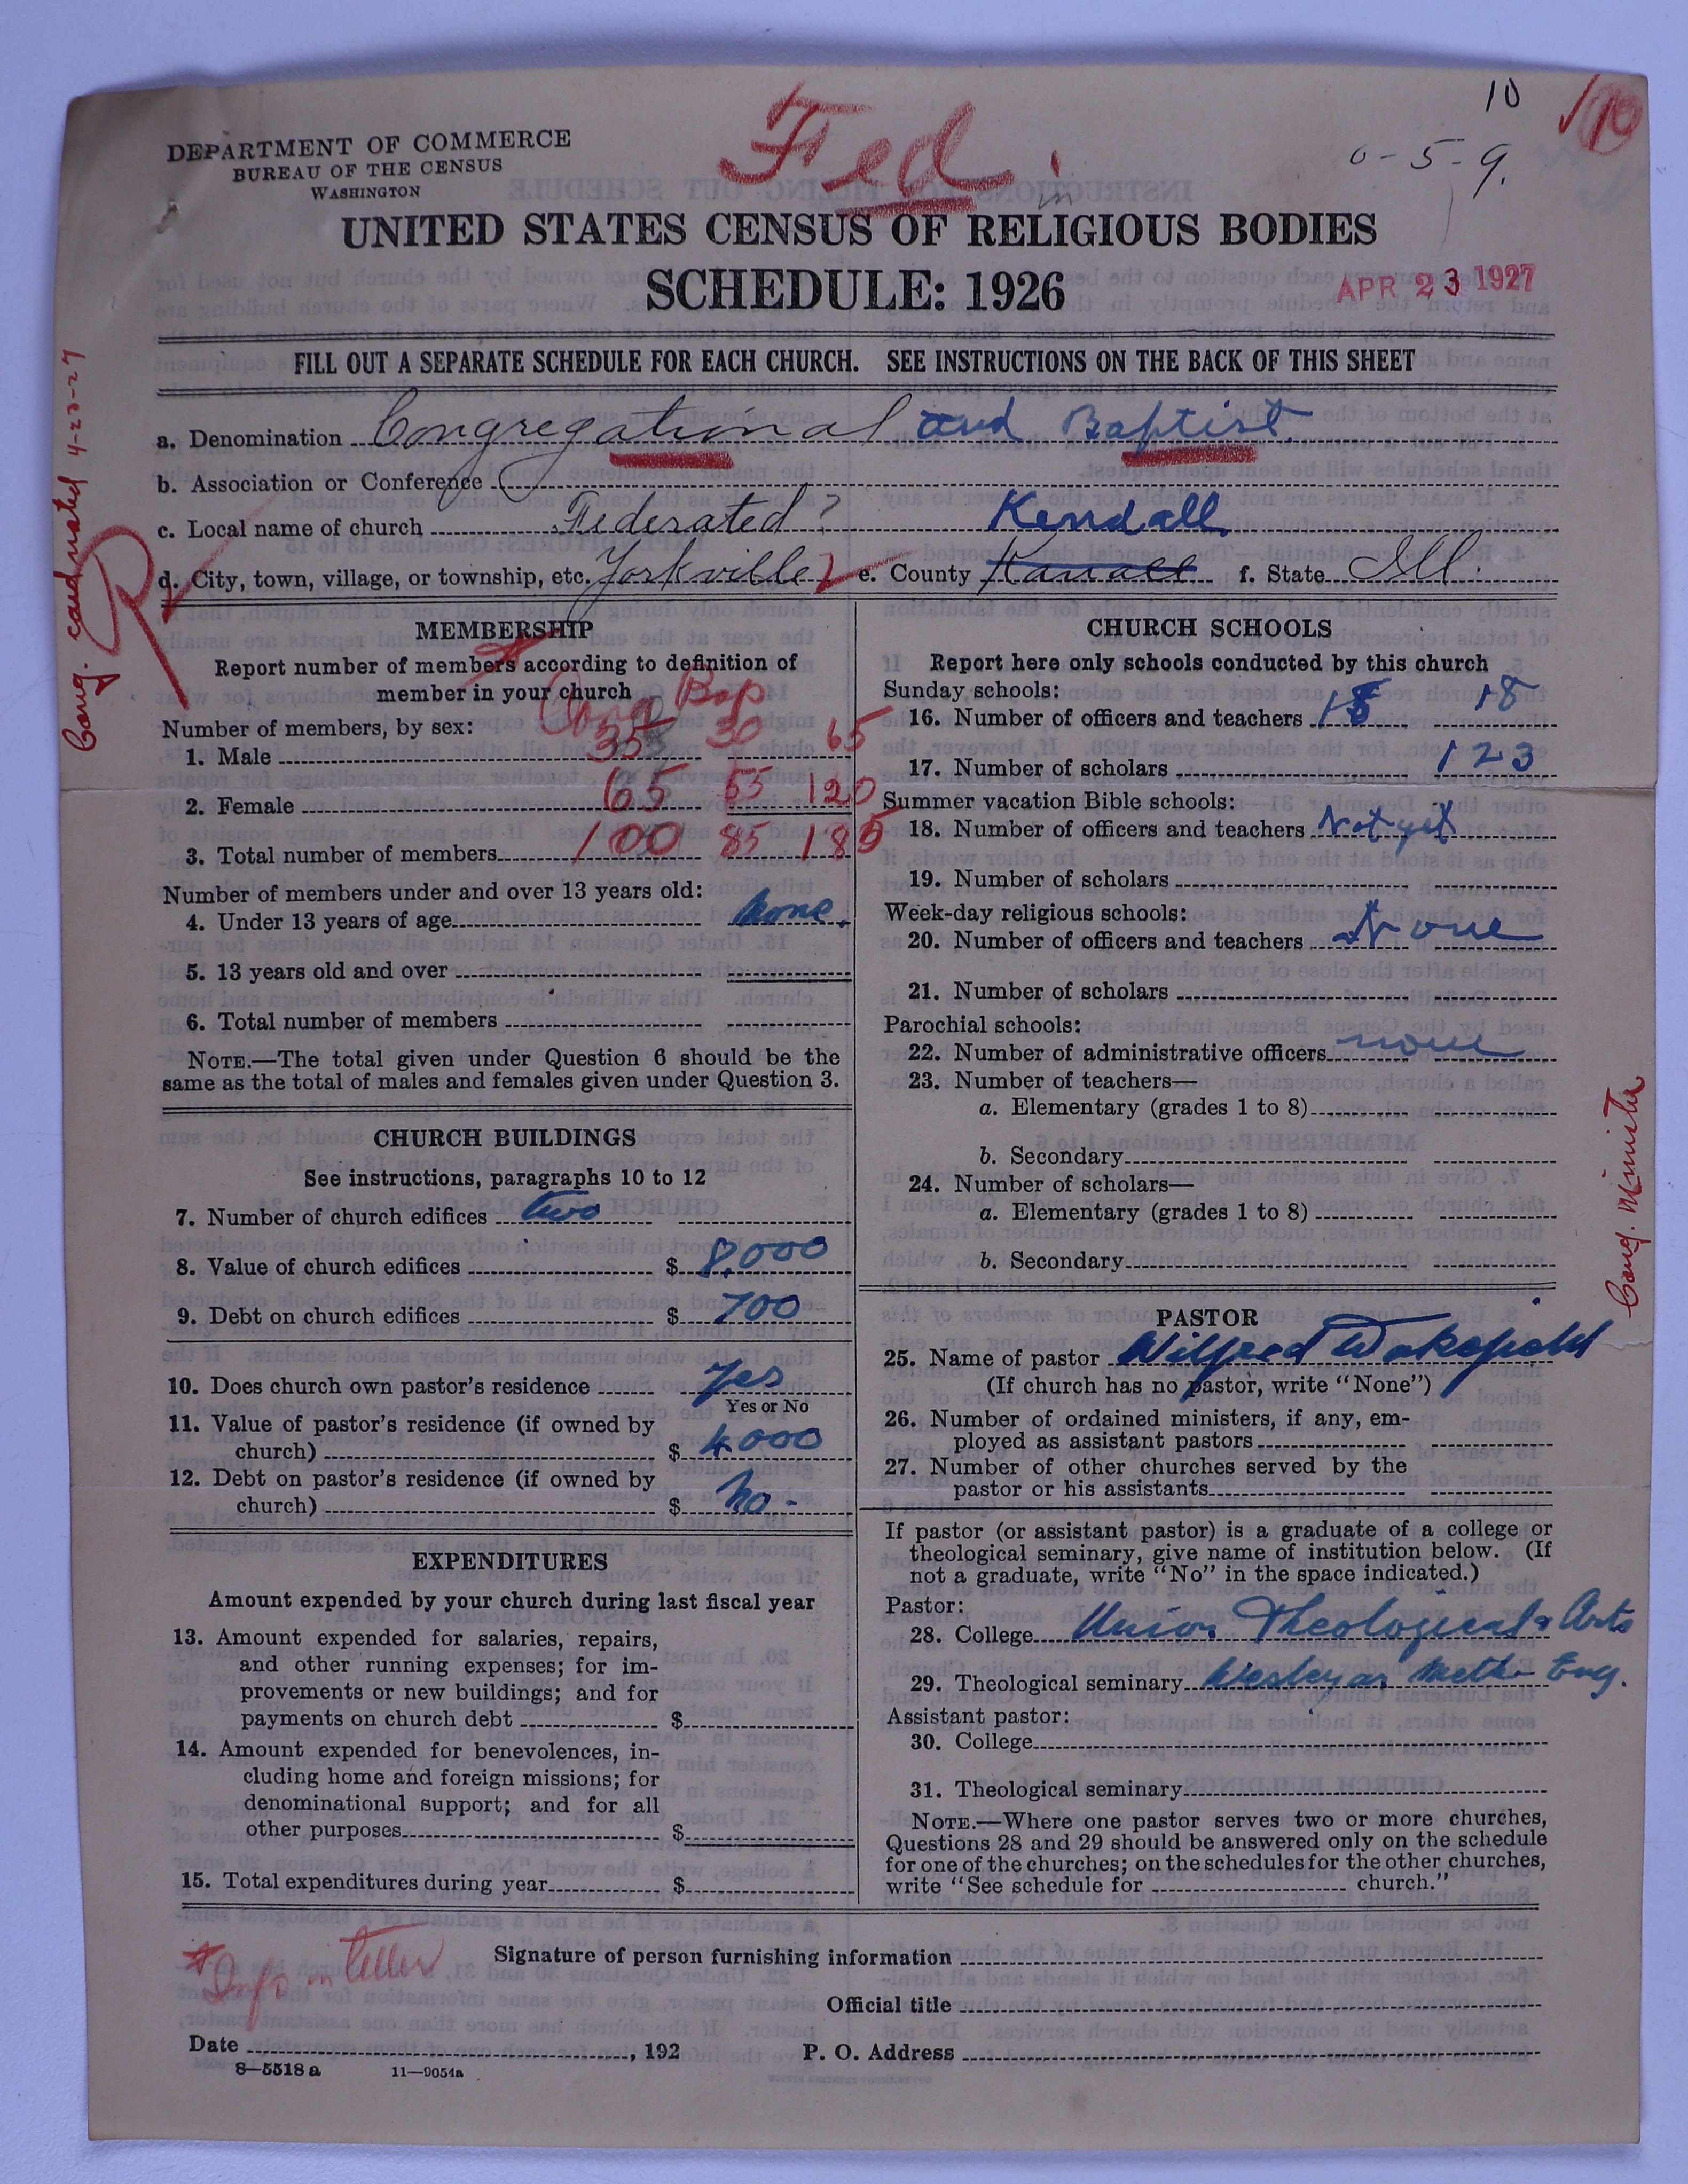 10
10
Fed.
6-5-9.
in
DEPARTMENT OF COMMERCE
BUREAU OF THE CENSUS
WASHINGTON
UNITED STATES CENSUS OF RELIGIOUS BODIES
SCHEDULE: 1926
APR 23 1927
FILL OUT A SEPARATE SCHEDULE FOR EACH CHURCH. SEE INSTRUCTIONS ON THE BACK OF THIS SHEET
a. Denomination Congregational and Baptist
b. Association or Conference
c. Local name of church Federated? Kendall
d. City, town, village, or township, etc. Yorkville e. County f. State Ill.
R
MEMBERSHIP
Report number of members according to definition of
member in your church
Cong Bap
Number of members, by sex:
1. Male 35 30 65
2. Female 65 55 120
3. Total number of members 100 85 185
Number of members under and over 13 years old:
4. Under 13 years of age None.
5. 13 years old and over
6. Total number of members
NOTE.—The total given under Question 6 should be the
same as the total of males and females given under Question 3.
CHURCH BUILDINGS
See instructions, paragraphs 10 to 12
7. Number of church edifices two
8. Value of church edifices $ 8,000
9. Debt on church edifices $ 700
10. Does church own pastor's residence Yes
Yes or No
11. Value of pastor's residence (if owned by
church) $ 4000
12. Debt on pastor's residence (if owned by
church) $ No -
EXPENDITURES
Amount expended by your church during last fiscal year
13. Amount expended for salaries, repairs,
and other running expenses; for im-
provements or new buildings; and for
payments on church debt $
14. Amount expended for benevolences, in-
cluding home and foreign missions; for
denominational support; and for all
other purposes $
15. Total expenditures during year $
CHURCH SCHOOLS
Report here only schools conducted by this church
Sunday schools:
16. Number of officers and teachers 18 18
17. Number of scholars 123
Summer vacation Bible schools:
18. Number of officers and teachers Not yet
19. Number of scholars
Week-day religious schools:
20. Number of officers and teachers None
21. Number of scholars
Parochial schools:
22. Number of administrative officers none
23. Number of teachers—
a. Elementary (grades 1 to 8)
b. Secondary
24. Number of scholars—
a. Elementary (grades 1 to 8)
b. Secondary
PASTOR
25. Name of pastor Wilfred Wakefield
(If church has no pastor, write "None")
26. Number of ordained ministers, if any, em-
ployed as assistant pastors
27. Number of other churches served by the
pastor or his assistants
If pastor (or assistant pastor) is a graduate of a college or
theological seminary, give name of institution below. (If
not a graduate, write "No" in the space indicated.)
Pastor:
28. College Union Theological & Arts
29. Theological seminary Wesleyan Meth Eng.
Assistant pastor:
30. College
31. Theological seminary
NOTE.—Where one pastor serves two or more churches,
Questions 28 and 29 should be answered only on the schedule
for one of the churches; on the schedules for the other churches,
write "See schedule for church."
Cong. Minister
Cong. 4-23-27
Info in letter
Signature of person furnishing information
Official title
Date , 192
P. O. Address
8—5518 a 11—9054a